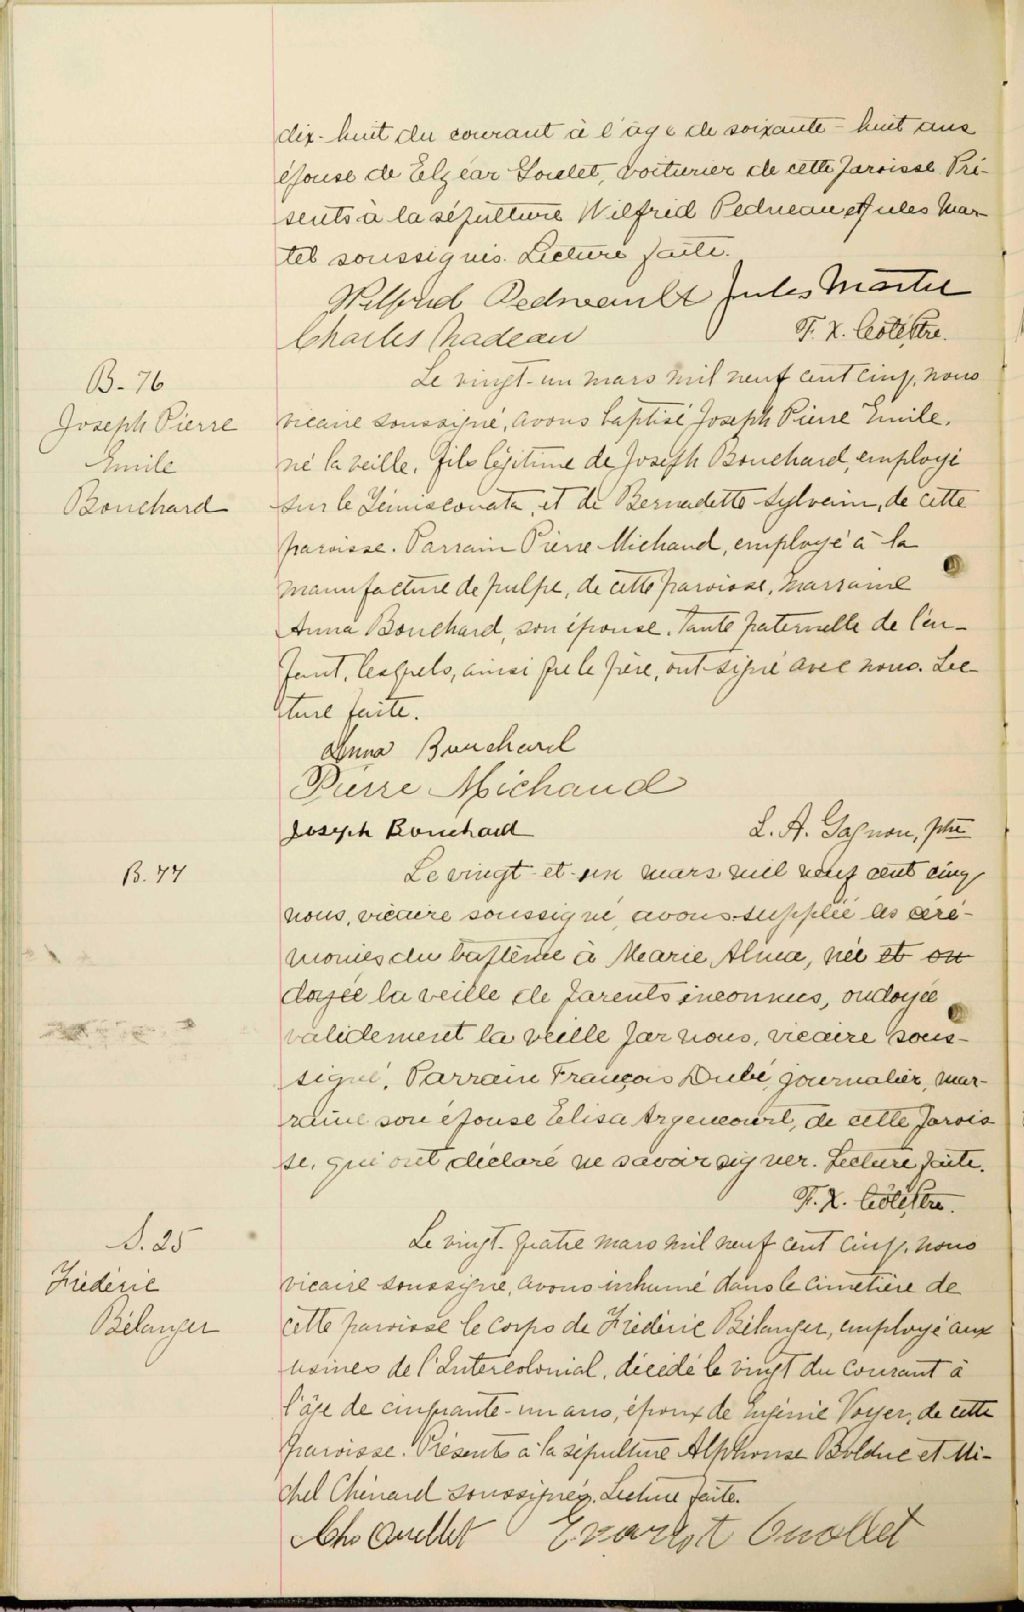 dix-huit du courant à l'âge de soixante-huit ans
épouse de Elzéar Goulet, voiturier de cette paroisse. Pré-
sents à la sépulture Wilfrid Pedneau et Jules Mar-
tel soussignés. Lecture faite.
Wilfrid Pedneault Jules Martel
Charles Nadeau F. X. Côté, Ptre.
B-76
Joseph Pierre
Emile
Bouchard
Le vingt-un mars mil neuf cent cinq, nous
vicaire soussigné, avons baptisé Joseph Pierre Emile,
né la veille, fils légitime de Joseph Bouchard, employé
sur le Témiscouata, et de Bernadette Sylvain, de cette
paroisse. Parrain Pierre Michaud, employé à la
manufacture de pulpe, de cette paroisse, marraine
Anna Bouchard, son épouse, tante paternelle de l'en-
fant, lesquels, ainsi que le père, ont signé avec nous. Lec-
ture faite.
Anna Bouchard
Pierre Michaud
Joseph Bouchard L. A. Gagnon, ptre
B. 77
Le vingt-et-un mars mil neuf cent cinq
nous, vicaire soussigné, avons suppléé les céré-
monies du baptême à Marie Alma, née et on
doyée la veille de parents inconnus, ondoyée
validement la veille par nous, vicaire sous-
signé. Parrain François Dubé, journalier, mar-
raine son épouse Elisa Argencourt, de cette parois
se, qui ont déclaré ne savoir signer. Lecture faite.
F. X. Côté, Ptre.
S. 25
Frédéric
Bélanger
Le vingt-quatre mars mil neuf cent cinq, nous
vicaire soussigné, avons inhumé dans le cimetière de
cette paroisse le corps de Frédéric Bélanger, employé aux
usines de l'Intercolonial, décédé le vingt du courant à
l'âge de cinquante-un ans, époux de Eugénie Voyer, de cette
paroisse. Présents à la sépulture Alphonse Bolduc et Mi-
chel Chénard soussignés. Lecture faite.
Chs Ouellet Evariste Ouellet